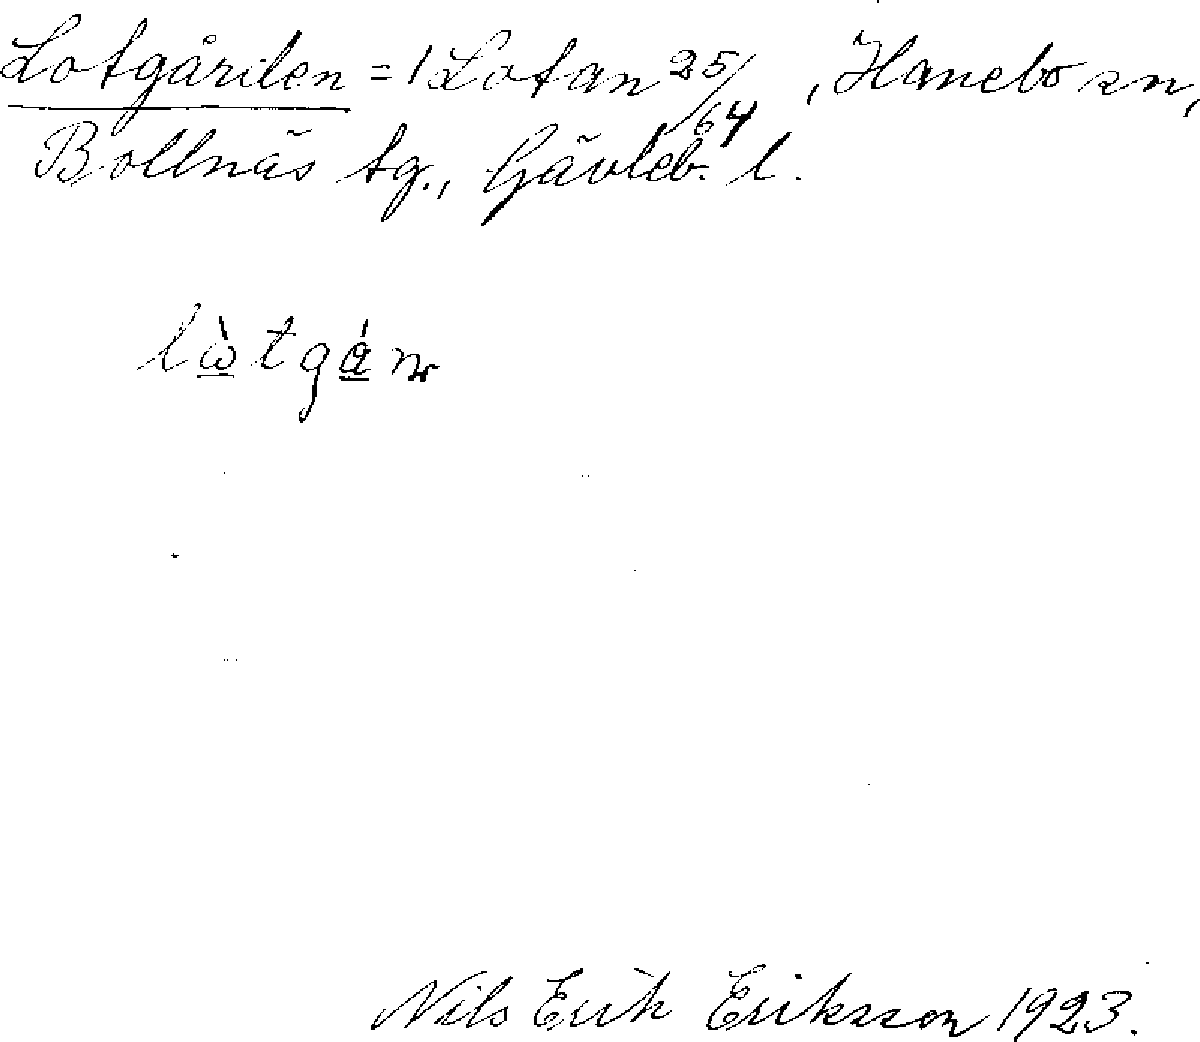 Lotgården = 1 Lotan 25/64, Hanebo sn,
Bollnäs tg., Gävleb. l.
Nils Erik Eriksson 1923.